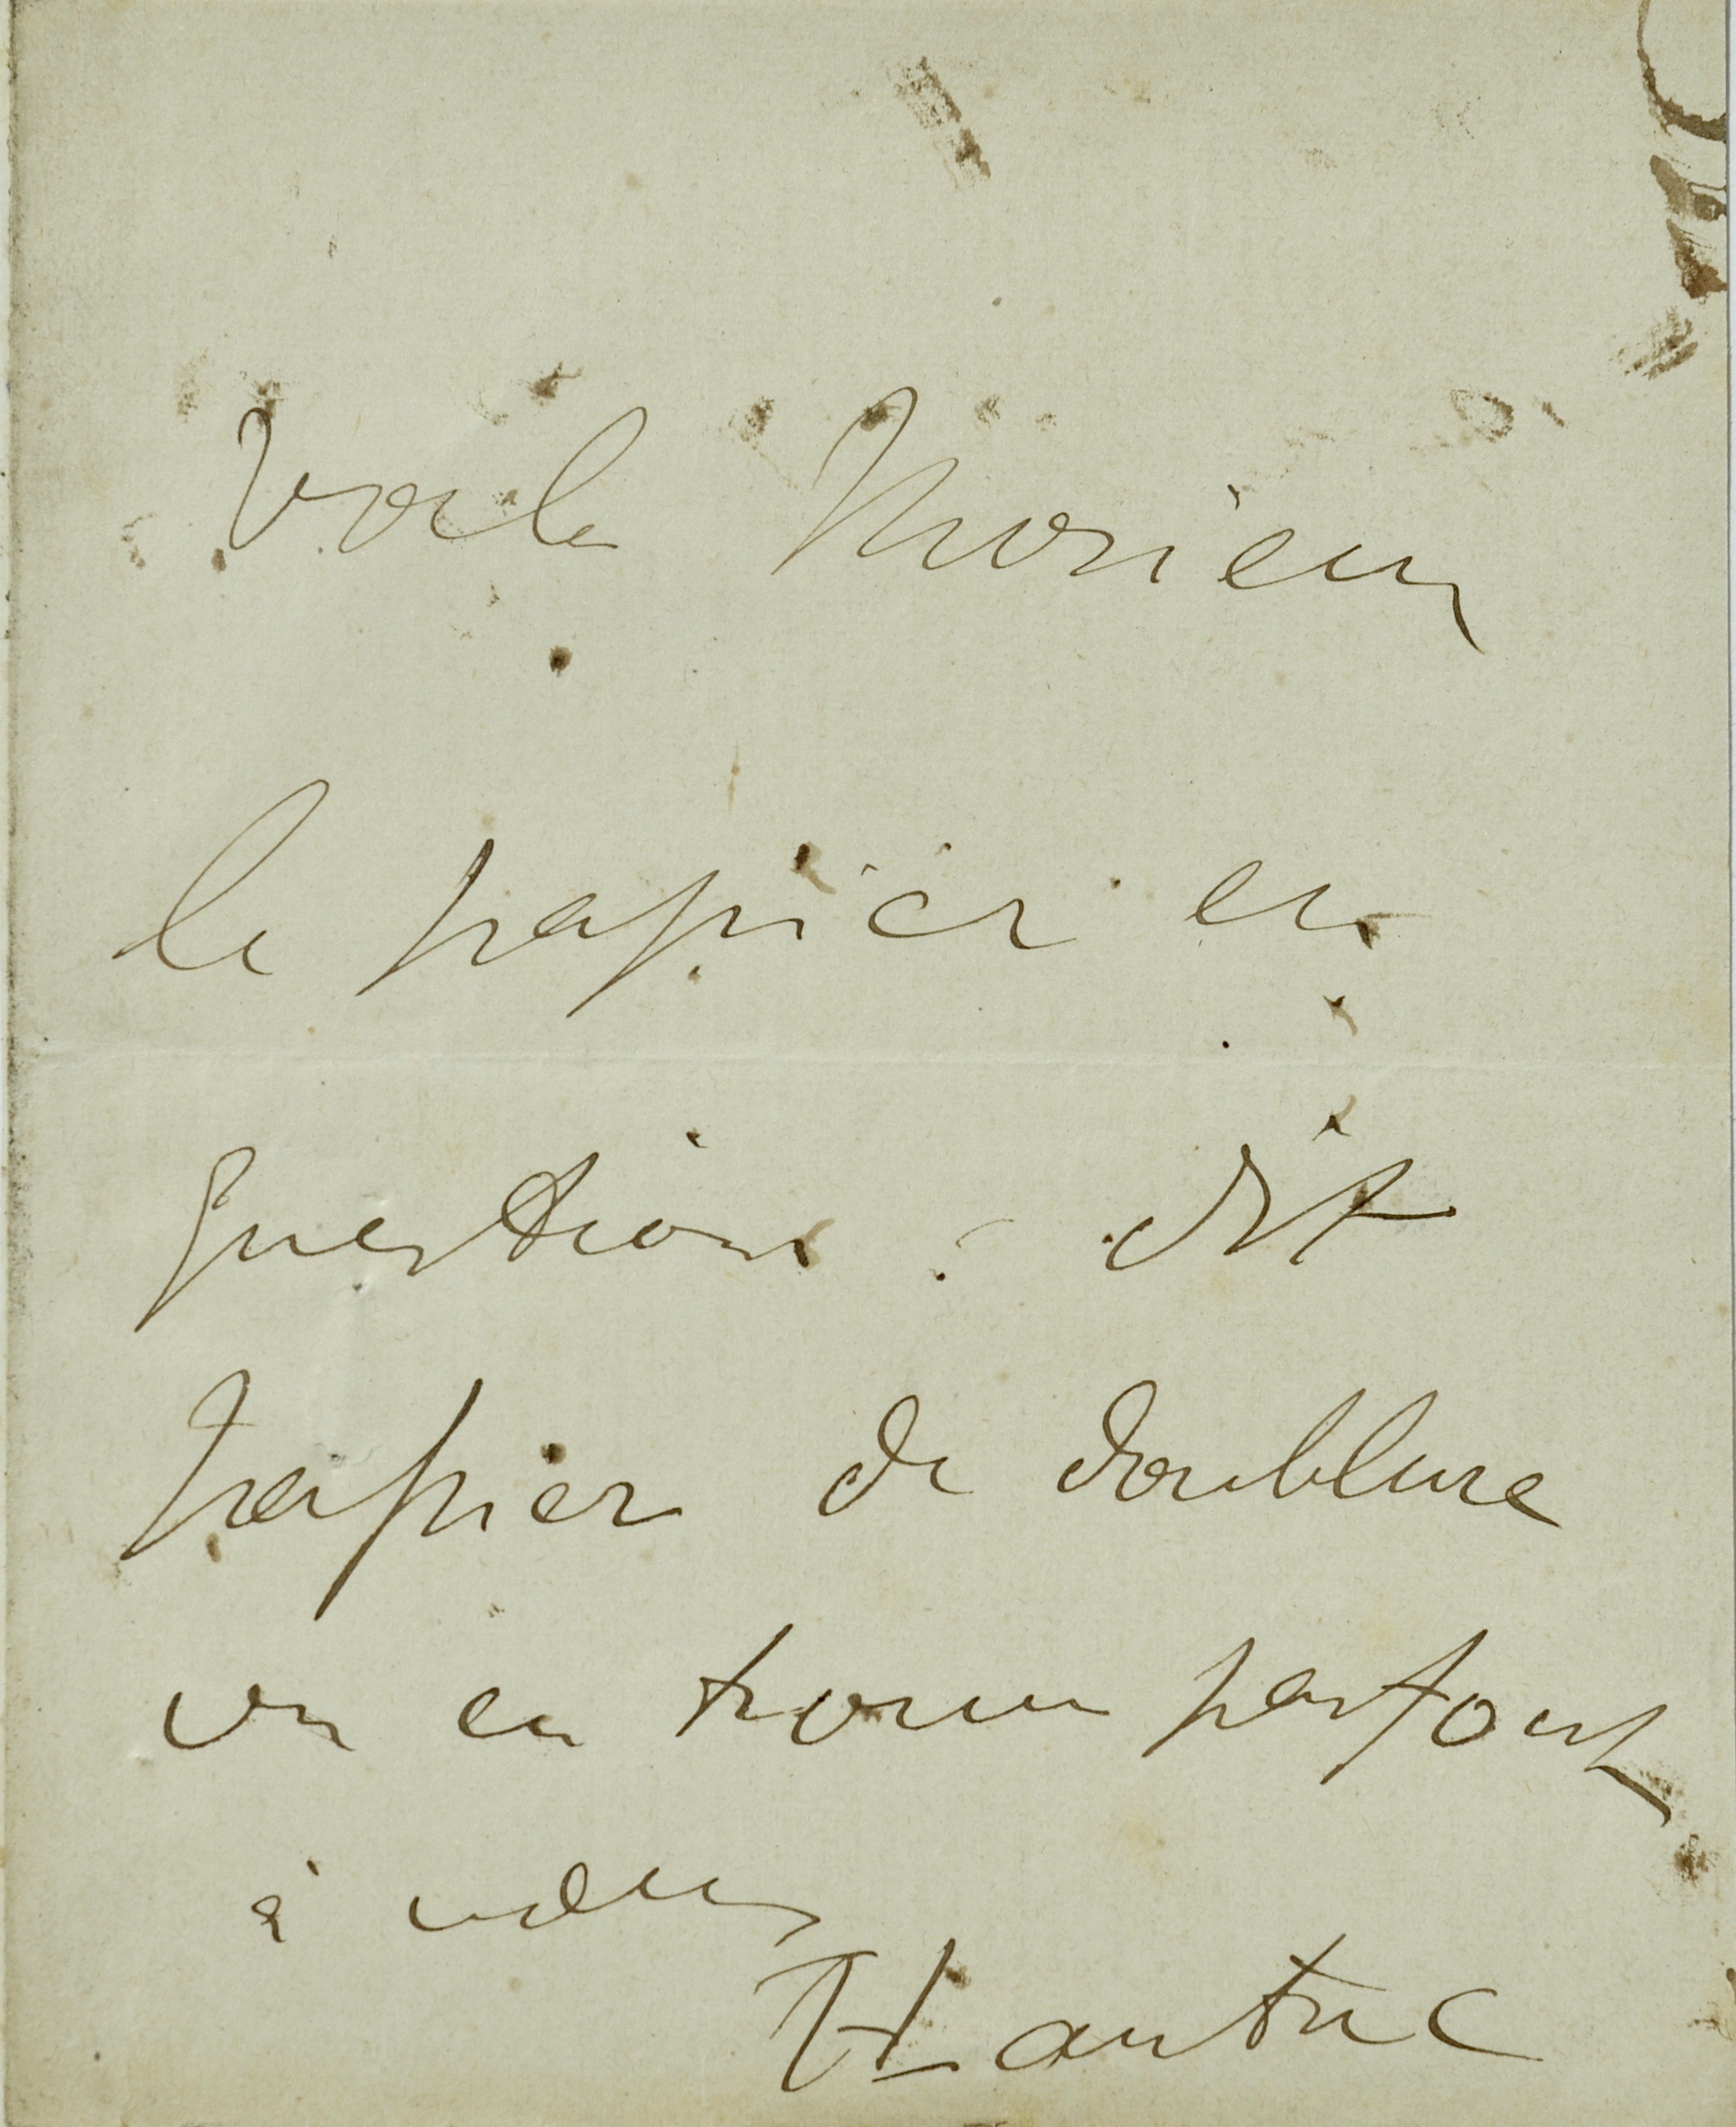 Voila Monsieur
le papier en
question : dit
papier de doublure
on en trouve partout
à vous
HLautrec